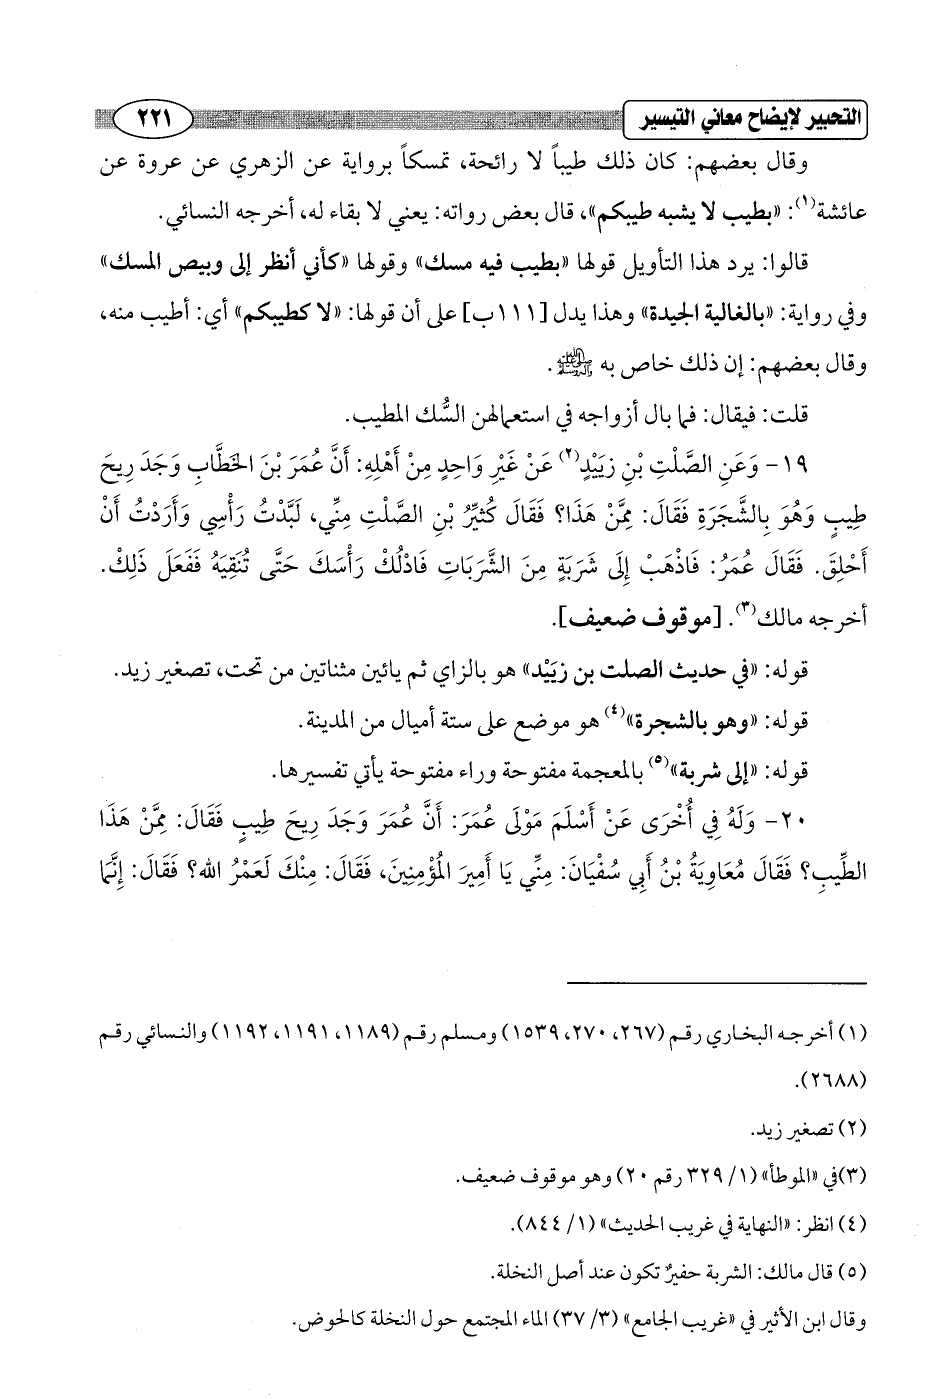 التحبير لإيضاح معاني التيسير ٢٢١
وقال بعضهم: كان ذلك طيباً لا رائحة، تمسكاً برواية عن الزهري عن عروة عن
عائشة(١): «بطيب لا يشبه طيبكم»، قال بعض رواته: يعني لا بقاء له، أخرجه النسائي.
قالوا: يرد هذا التأويل قولها «بطيب فيه مسك» وقولها «كأني أنظر إلى وبيص المسك»
وفي رواية: «بالغالية الجيدة» وهذا يدل [١١١ب] على أن قولها: «لا كطيبكم» أي: أطيب منه،
وقال بعضهم: إن ذلك خاص به ﷺ.
قلت: فيقال: فما بال أزواجه في استعمالهن السُّك المطيب.
١٩- وَعَنِ الصَّلْتِ بْنِ زيَيْدٍ(٢) عَنْ غَيْرِ وَاحِدٍ مِنْ أَهْلِهِ: أَنَّ عُمَرَ بْنَ الخَطَّابِ وَجَدَ رِيحَ
طِيبٍ وَهُوَ بِالشَّجَرَةِ فَقَالَ: مِمَّنْ هَذَا؟ فَقَالَ كُثَيِّرُ بْنِ الصَّلْتِ مِنِّي، لَبَّدْتُ رَأْسِي وَأَرَدْتُ أَنْ
أَحْلِقَ. فَقَالَ عُمَرُ: فَاذْهَبْ إِلَى شَرَبَةٍ مِنَ الشَّرَبَاتِ فَادْلُكْ رَأْسَكَ حَتَّى تُنَقِيَهُ فَفَعَلَ ذَلِكَ.
أخرجه مالك(٣). [موقوف ضعيف].
قوله: «في حديث الصلت بن زيَيْد» هو بالزاي ثم يائين مثناتين من تحت، تصغير زيد.
قوله: «وهو بالشجرة»(٤) هو موضع على ستة أميال من المدينة.
قوله: «إلى شربة»(٥) بالمعجمة مفتوحة وراء مفتوحة يأتي تفسيرها.
٢٠- وَلَهُ فِي أُخْرَى عَنْ أَسْلَمَ مَوْلَى عُمَرَ: أَنَّ عُمَرَ وَجَدَ رِيحَ طِيبٍ فَقَالَ: مِمَّنْ هَذَا
الطِّيبِ؟ فَقَالَ مُعَاوِيَةُ بْنُ أَبِي سُفْيَانَ: مِنِّي يَا أَمِيرَ المُؤْمِنِينَ، فَقَالَ: مِنْكَ لَعَمْرُ الله؟ فَقَالَ: إِنَّمَا
(١) أخرجه البخاري رقم (٢٦٧، ٢٧٠، ١٥٣٩) ومسلم رقم (١١٨٩، ١١٩١، ١١٩٢) والنسائي رقم
(٢٦٨٨).
(٢) تصغير زيد.
(٣)في «الموطأ» (١/ ٣٢٩ رقم ٢٠) وهو موقوف ضعيف.
(٤) انظر: «النهاية في غريب الحديث» (١/ ٨٤٤).
(٥) قال مالك: الشربة حفيرٌ تكون عند أصل النخلة.
وقال ابن الأثير في «غريب الجامع» (٣/ ٣٧) الماء المجتمع حول النخلة كالحوض.